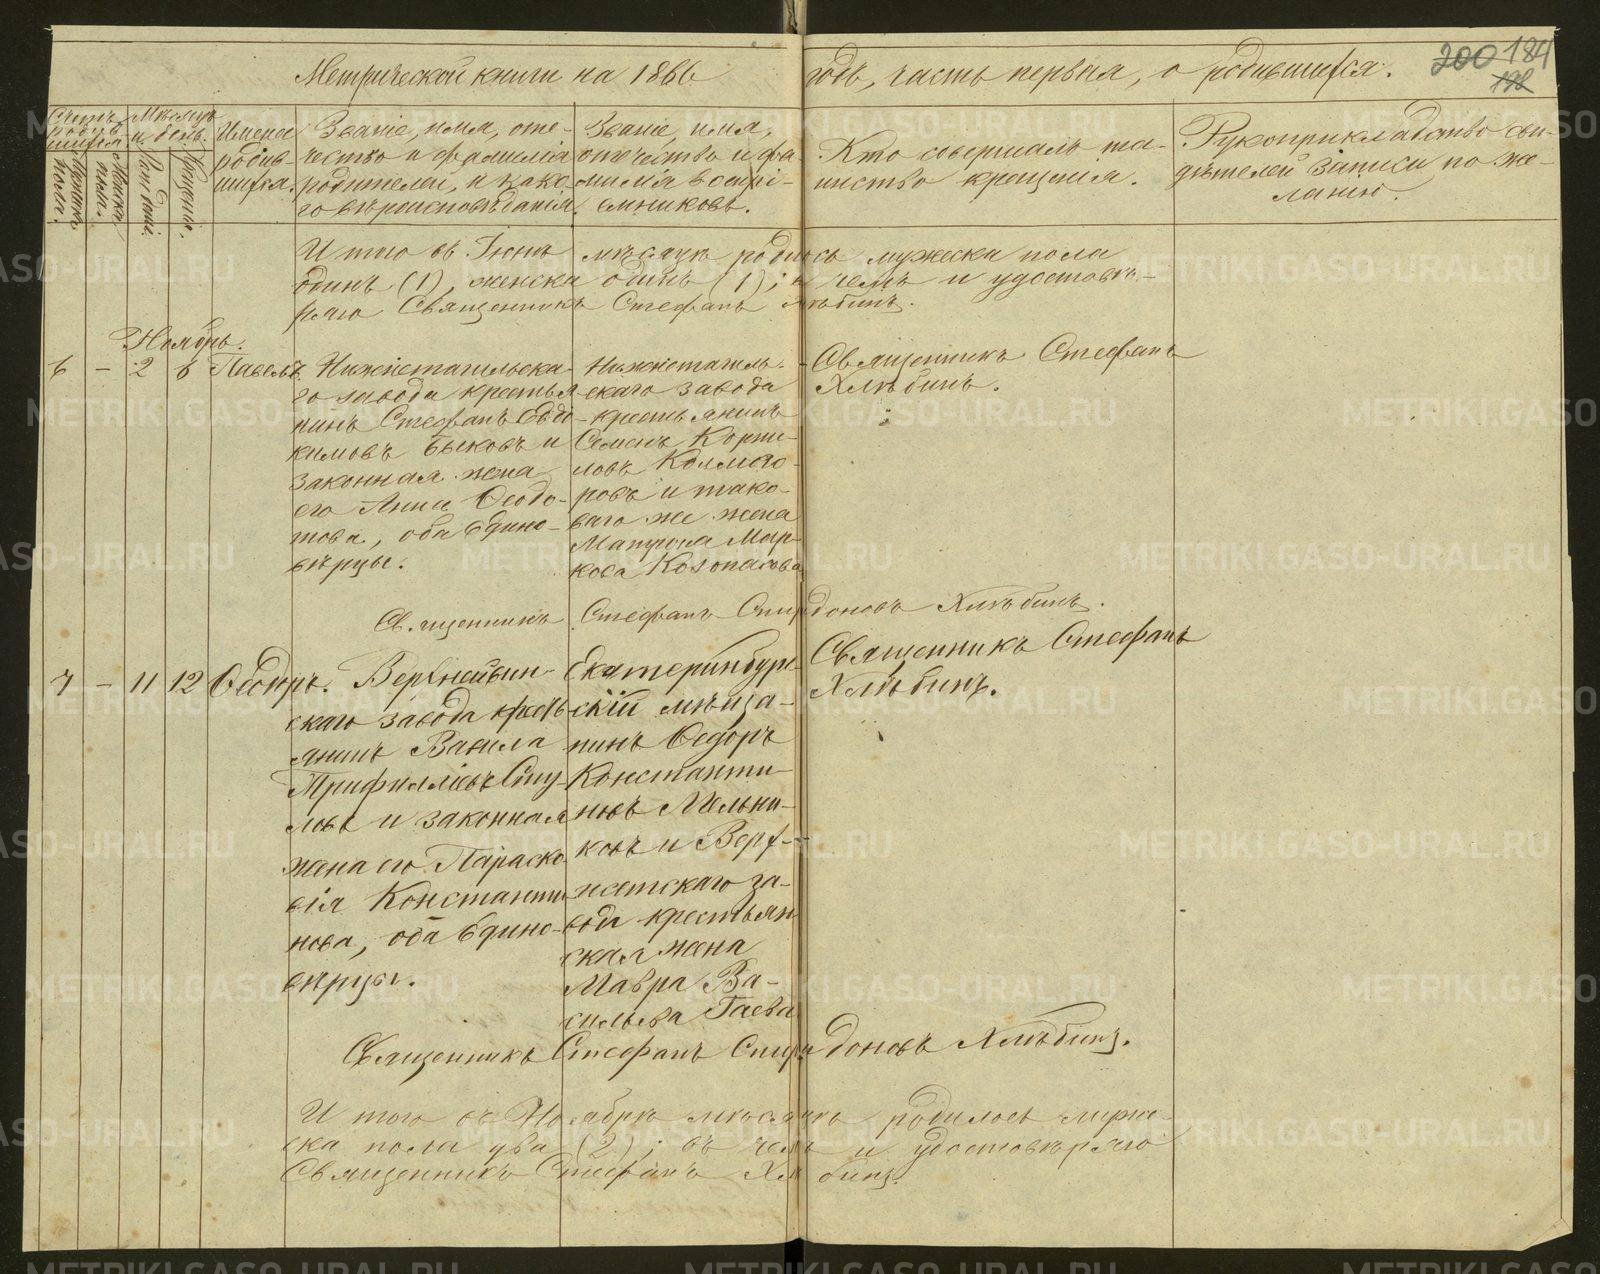 Метрической книги на 1866 годъ, часть первая, о родившихся.
200 184
198
Счетъ родившихся.
Мужска пола.
Женска пола.
Мѣсяцъ и день.
Рожденія.
Крещенія.
Имена родившихся.
Званіе, имя, отечество и фамилія родителей, и какого вѣроисповѣданія.
Званіе, имя, отечество и фамилія воспріемниковъ.
Кто совершалъ таинство крещенія.
Рукоприкладство свидѣтелей записи по желанію.
Итого въ Іюнѣ мѣсяцѣ родилось мужеска пола
одинъ (1), женска одинъ (1); въ чемъ и удостовѣ-
ряю Священникъ Стефанъ Хлѣбинъ.
Ноябрь.
6 – 2 6 Павелъ.
Нижнетагильска-
го завода крестья-
нинъ Стефанъ Евдо-
кимовъ Быковъ и
законная жена
его Анна Ѳеодо-
това, оба Едино-
вѣрцы.
Нижнетагиль-
скаго завода
крестьянинъ
Семенъ Корни-
ловъ Колмого-
ровъ и тако-
ваго же жена
Матрона Мар-
кова Козопасова
Священникъ Стефанъ
Хлѣбинъ.
Священникъ Стефанъ Спиридоновъ Хлѣбинъ.
7 – 11 12 Ѳеодоръ.
Верхнейвин-
скаго завода кресть-
янинъ Вавила
Трифилліевъ
и законная
жена его Параско-
вія Константи-
нова, оба Едино-
вѣрцы.
Екатеринбург-
скій мѣща-
нинъ Ѳедоръ
Константи-
новъ Мельни-
ковъ и Верх-
исетскаго за-
вода крестьян-
ская жена
Мавра Ва-
сильева Гаева
Священникъ Стефанъ
Хлѣбинъ.
Священникъ Стефанъ Спиридоновъ Хлѣбинъ.
Итого въ Ноябрѣ мѣсяцѣ родилось муже-
ска пола два (2); въ чемъ и удостовѣряю
Священникъ Стефанъ Хлѣбинъ.
METRIKI.GASO-URAL.RU